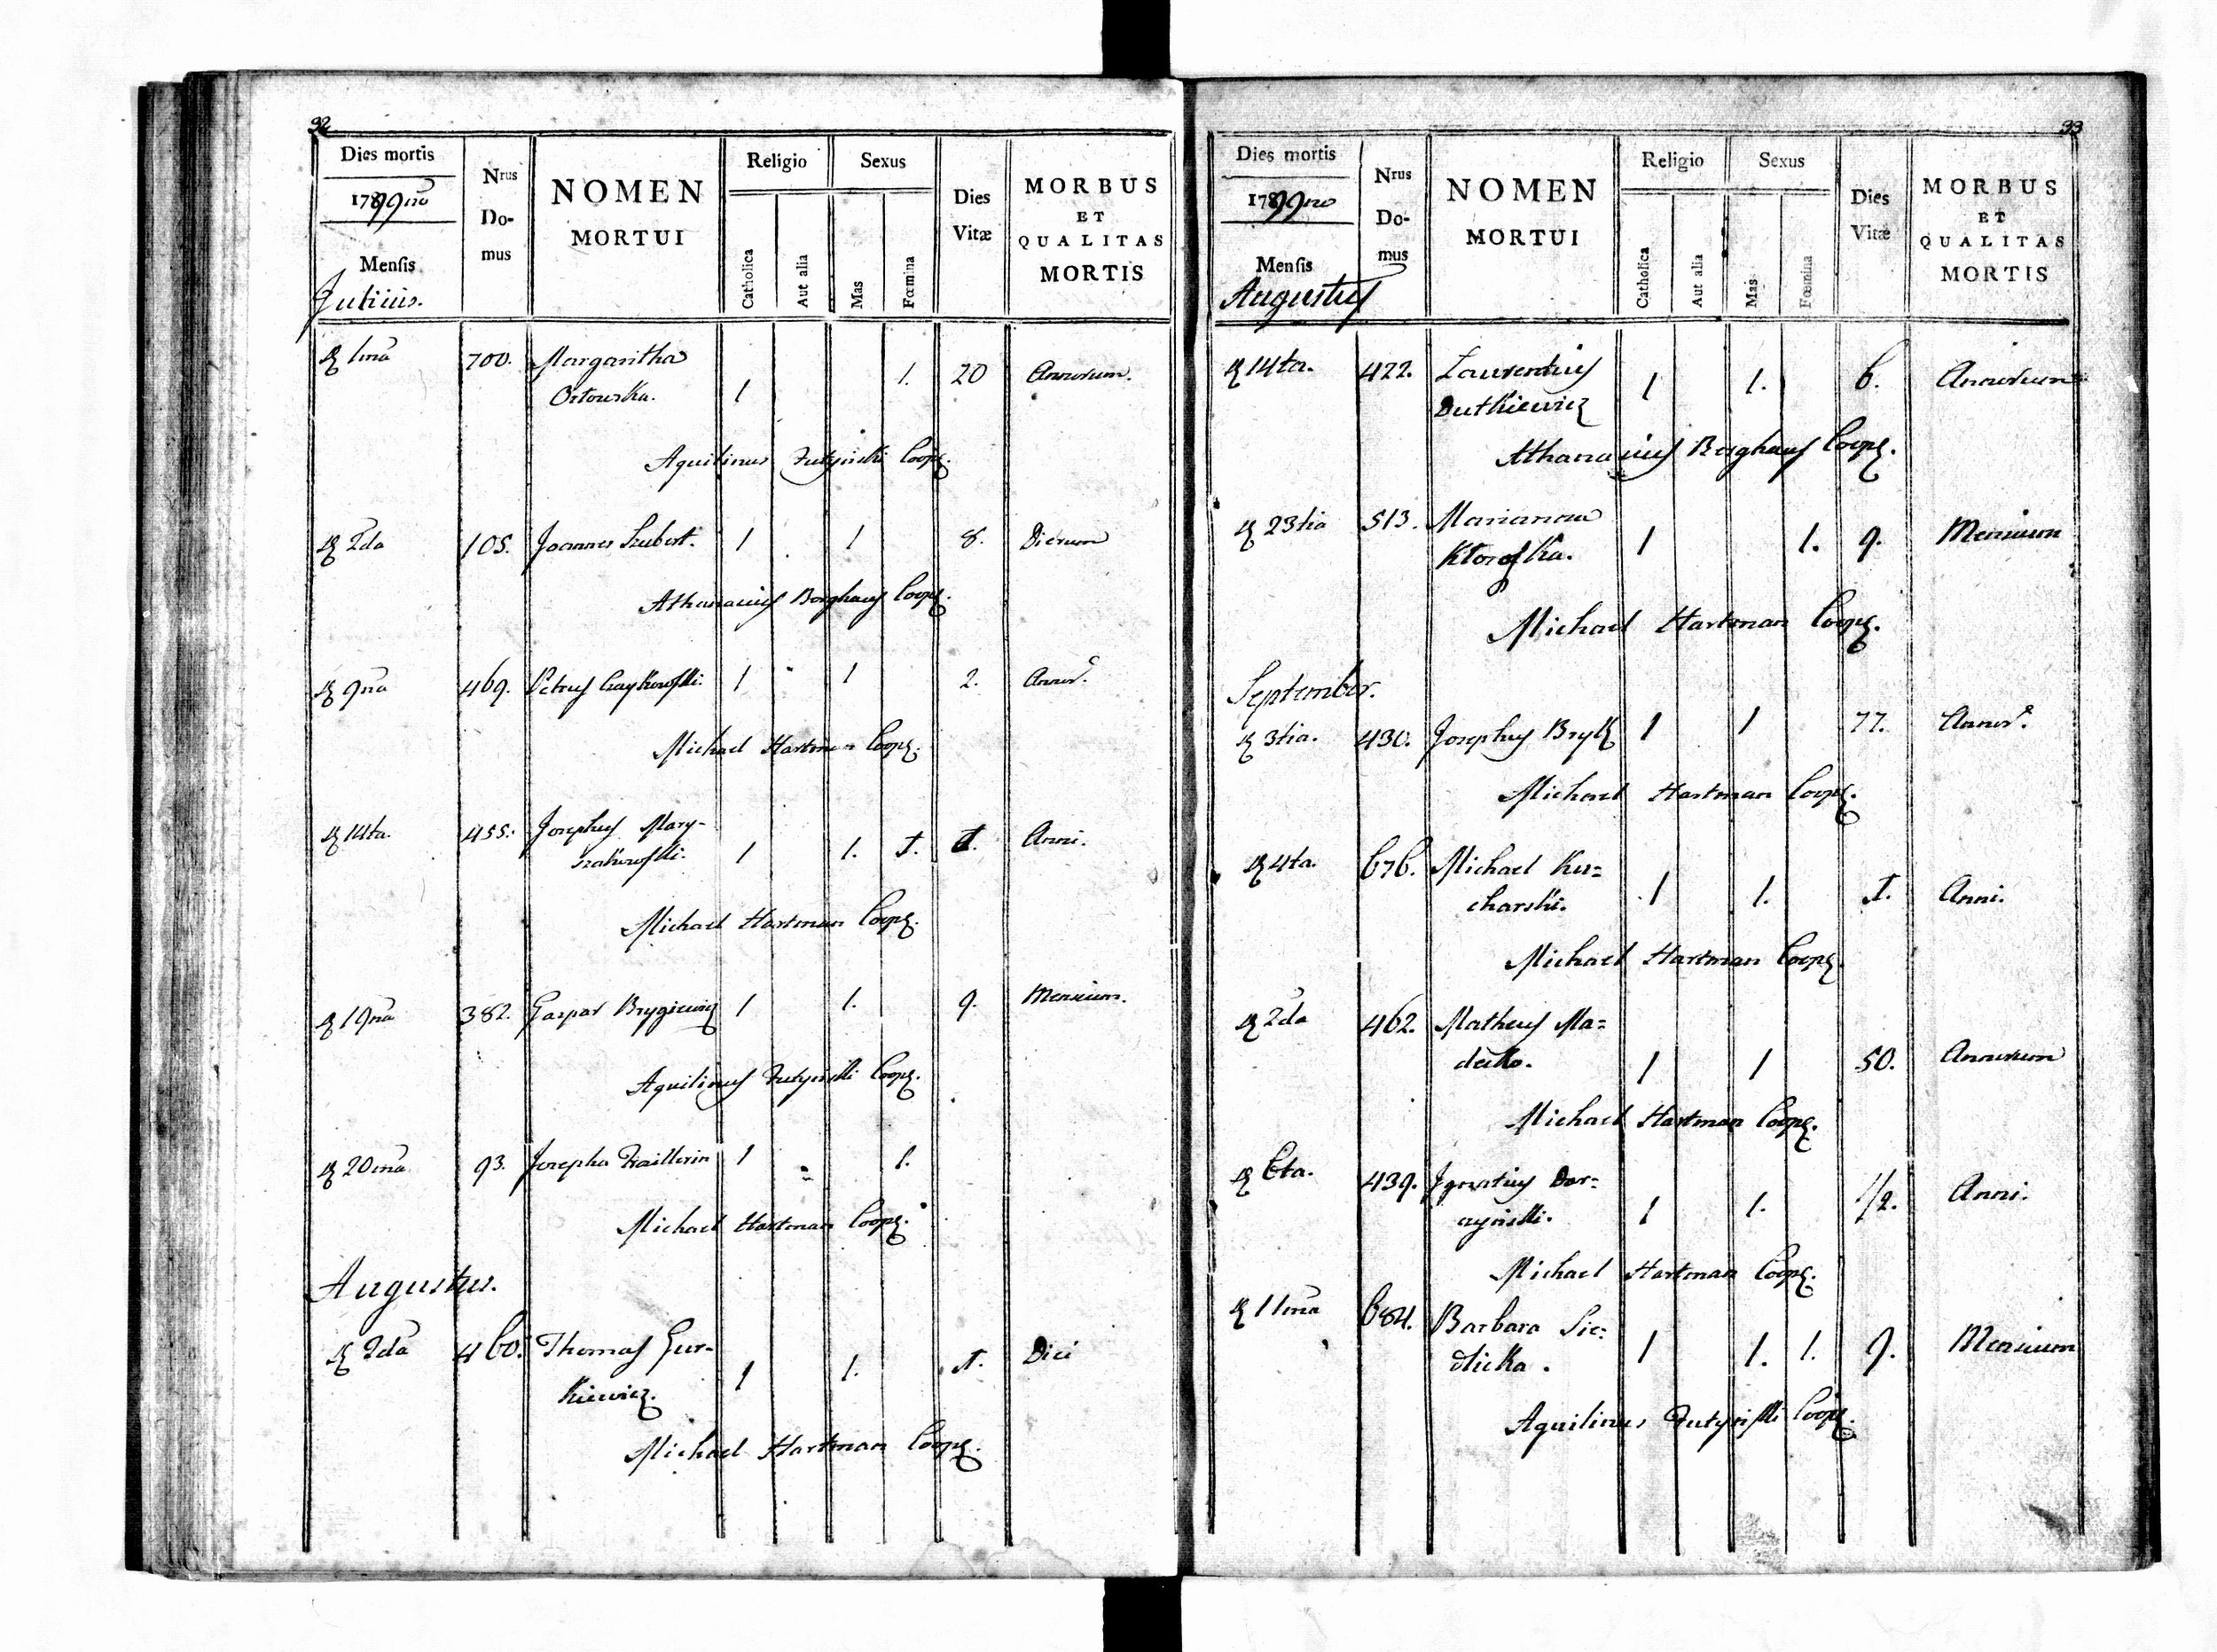 32
Dies mortis
1799no
Mensis
Julius.
Nrus Do-mus
NOMEN
MORTUI
Religio
Catholica
Aut alia
Sexus
Mas
Fœmina
Dies Vitæ
MORBUS
ET
QUALITAS
MORTIS
1ma 700. Margaritha 1. 20 Annorum.
Ortowska. 1
Aquilinus Futyński Coop.
2da 105. Joannes Szubert. 1 1 8. Dierum
Athanasius Borghaus Coop.
9na 469. Petrus Czaykowski. 1 1 2. Annor.
Michael Hartman Coop.
14ta. 455. Josephus Mary-
szakowski. 1 1. I. I. Anni.
Michael Hartman Coop.
19na 382. Gaspar Brygiewicz 1 1. 9. Mensium.
Aquilinus Futyński Coop.
20ma 93. Josepha 1 1.
Michael Hartman Coop.
Augustus.
2da 460. Thomas Gur-
kiewicz. 1 1. I. Diei
Michael Hartman Coop.
33
Dies mortis
1799no
Mensis
Augustus
Nrus Do-mus
NOMEN
MORTUI
Religio
Catholica
Aut alia
Sexus
Mas
Fœmina
Dies Vitæ
MORBUS
ET
QUALITAS
MORTIS
14ta. 422. Laurentius
Dutkiewicz 1 1. 6. Annorum
Athanasius Borghaus Coop.
23tia 513. Marianna
Ktorofka. 1 1. 9. Mensium
Michael Hartman Coop.
September.
3tia. 430. Josephus Bryk 1 1 77. Annor.
Michael Hartman Coop.
4ta. 676. Michael Ku=
charski. 1 1. I. Anni.
Michael Hartman Coop.
2da 462. Matheus Ma=
deiko. 1 1 50. Annorum
Michael Hartman Coop.
6ta. 439. Ignatius Dor=
czyński. 1 1. 1/2. Anni.
Michael Hartman Coop.
11ma 684. Barbara Sie=
dlicka. 1 1. 1. 9. Mensium
Aquilinus Futyński Coop.